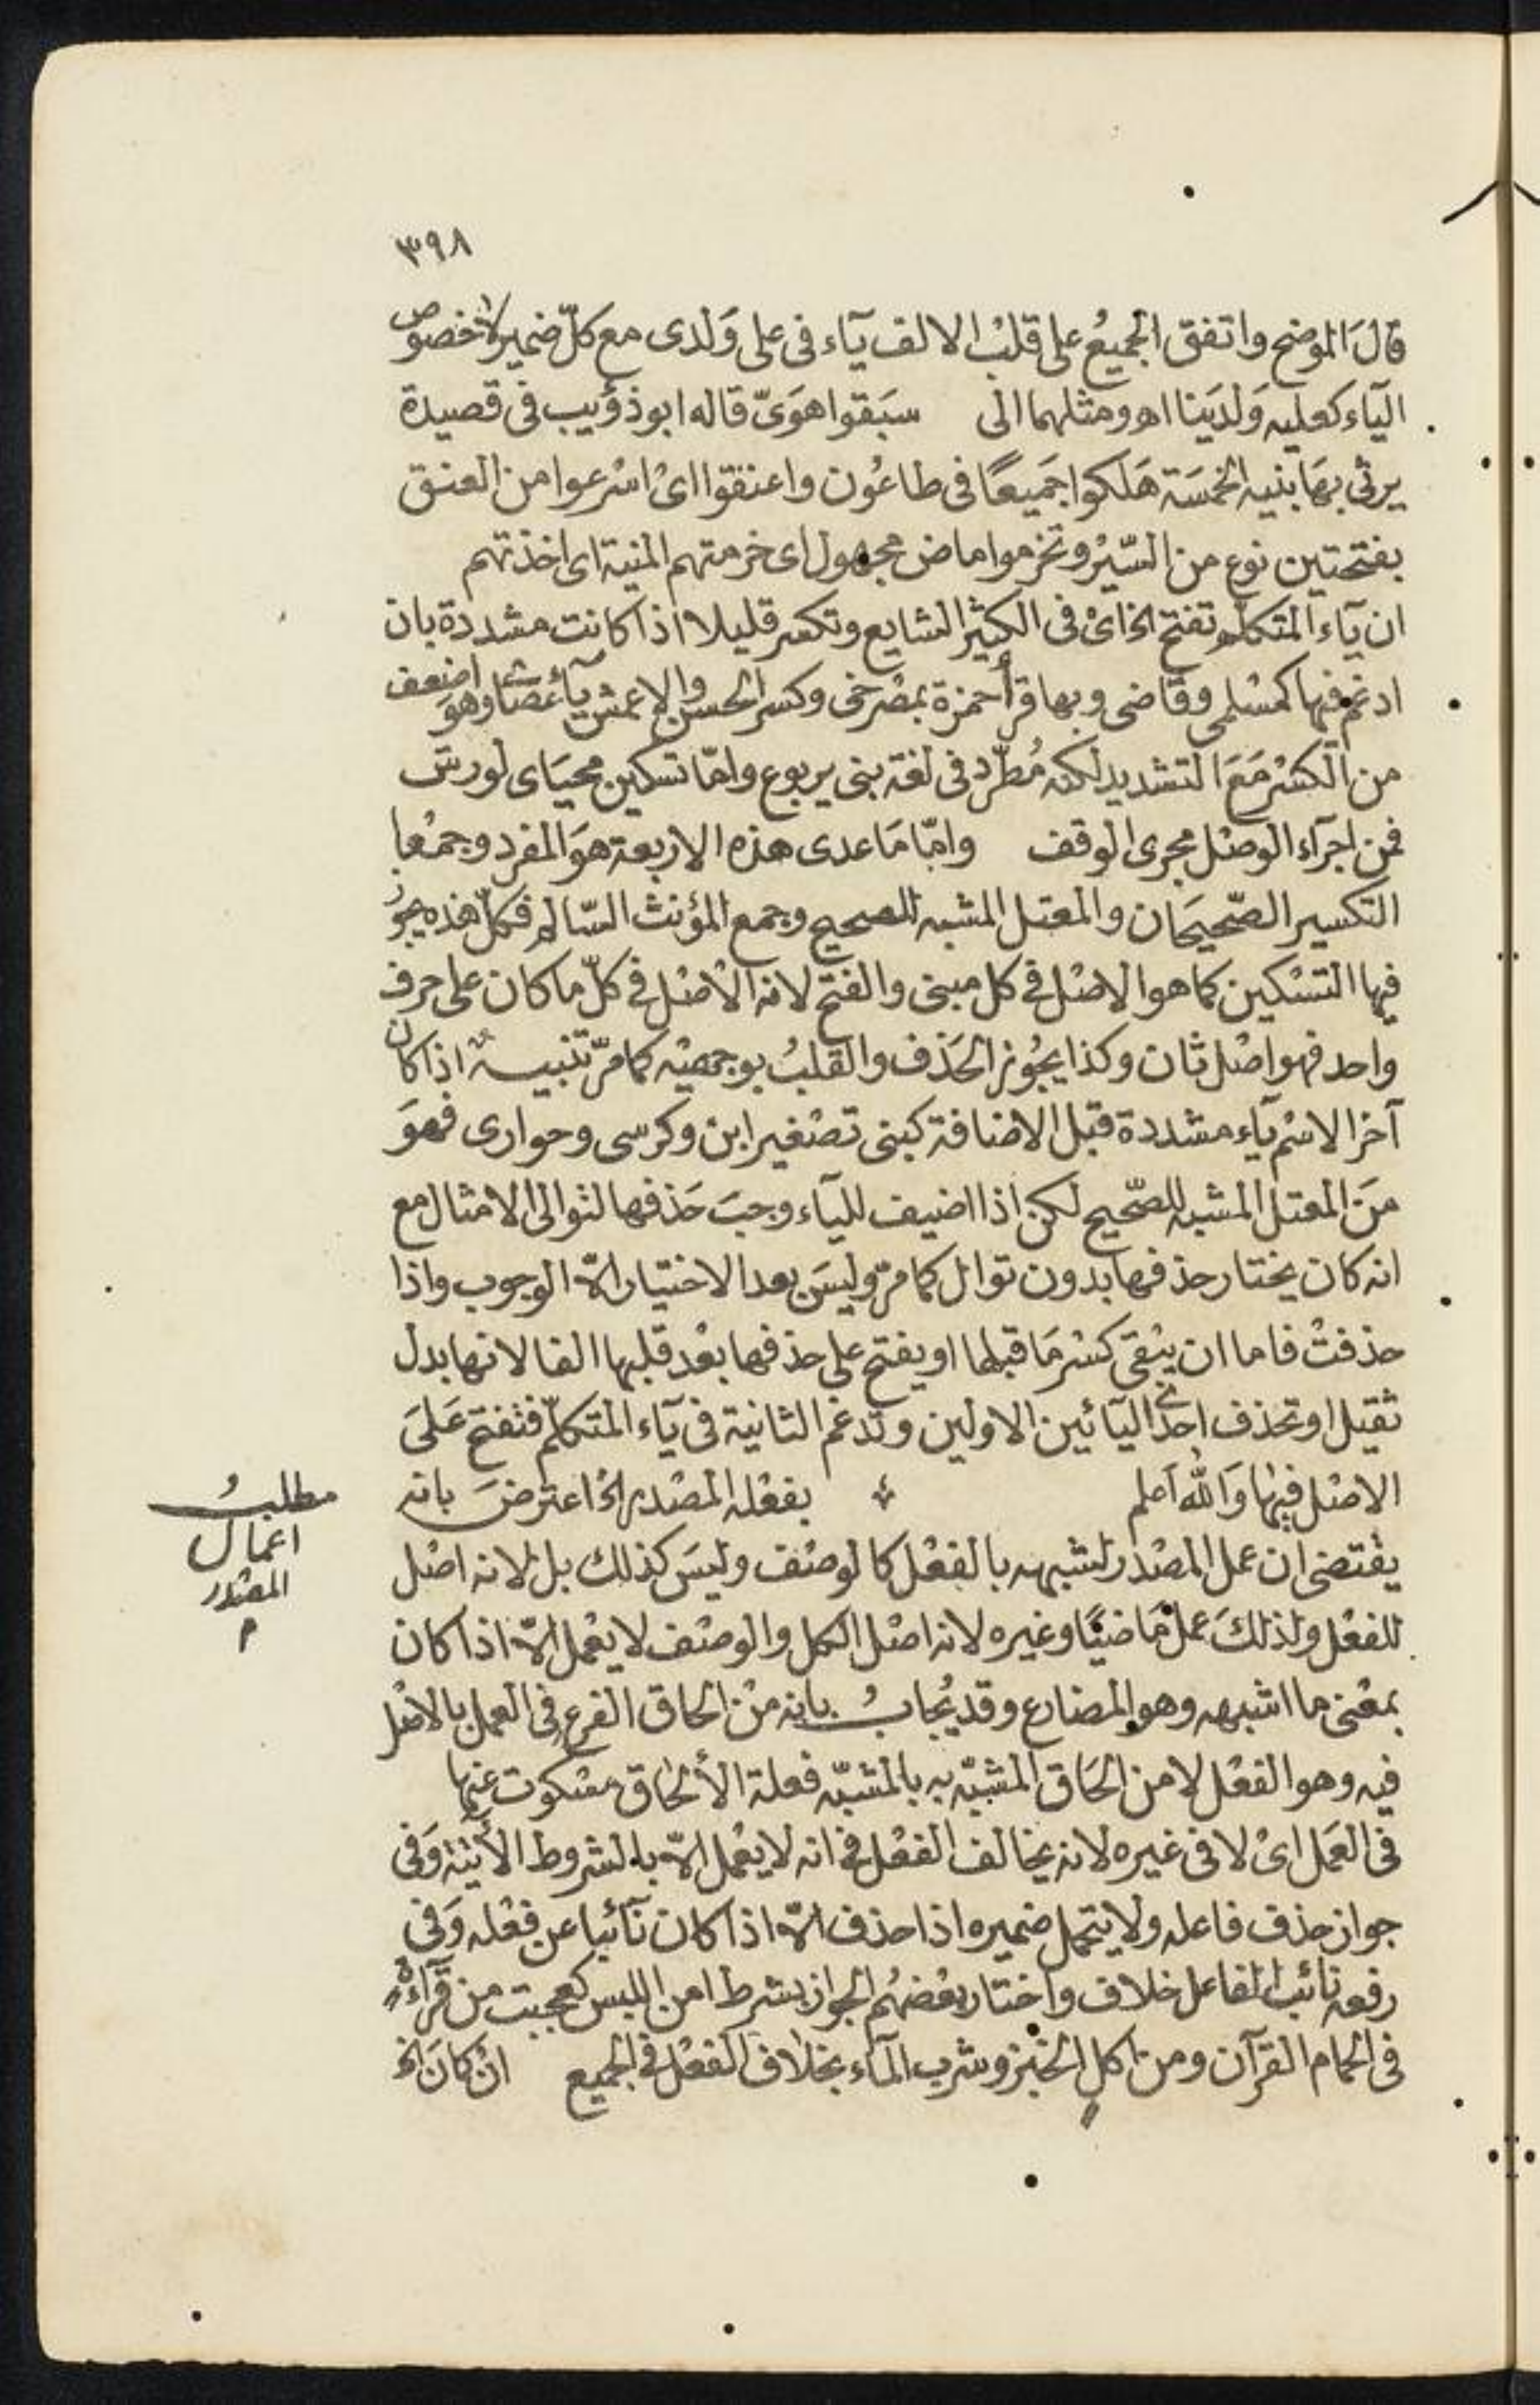 ٣٩٨
قال الموضح واتفق الجميع على قلب الالف ياء فى على ولدى مع كل ضمير لا خصوص
الياء كعليه ولدينا اهـ ومثلهما الى سبقوا هوىّ قاله ابو ذؤيب فى قصيدة
يرثى بها بنيه الخمسة هلكوا جميعًا فى طاعون واعنقوا اى اسرعوا من العنق
بفتحتين نوع من السير وتخرموا ماض مجهول اى خرمتهم المنية اى اخذتهم
ان ياء المتكلم تفتح الخ اى فى الكثير الشايع وتكسر قليلا اذا كانت مشددة بان
ادغم فيها كمسلمى وقاضى وبها قرأ حمزة بمصرخى وكسر الحسن والاعمش ياء عصاى وهو اضعف
من الكسر مع التشديد لكنه مُطّرد فى لغة بنى يربوع وامّا تسكين محياى لورش
فمن اجراء الوصل مجرى الوقف وامّا ما عدى هذه الاربعة هو المفرد وجمعا
التكسير الصحيحان والمعتل المشبه للصحيح وجمع المؤنث السالم فكل هذه يجوز
فيها التسكين كما هو الاصل فى كل مبنى والفتح لانه الاصل فى كلّ ما كان على حرف
واحد فهو اصل ثان وكذا يجوز الحذف والقلب بوجهيه كما مرّ تنبيه اذا كان
آخر الاسم ياء مشددة قبل الاضافة كبنى تصغير ابن وكرسى وحوارى فهو
من المعتل المشبه للصحيح لكن اذا اضيف للياء وجب حذفها لتوالى الامثال مع
انه كان يختار حذفها بدون توال كما مرّ وليس بعد الاختيار الاّ الوجوب واذا
حذفت فاما ان يبقى كسر ما قبلها او يفتح على حذفها بعد قلبها الفا لانها بدل
ثقيل او تحذف احدى اليائين الاولين وتدغم الثانية فى ياء المتكلم فتفتح على
الاصل فيها والله اعلم بفعله المصدر الخ اعترض بانه
مطلب
اعمال
المصدر
م
يقتضى ان عمل المصدر لشبهه بالفعل كالوصف وليس كذلك بل لانه اصل
للفعل ولذلك عمل ماضيًا وغيره لانه اصل الكل والوصف لا يعمل الاّ اذا كان
بمعنى ما اشبهه وهو المضارع وقد يُجابُ بانه من الحاق الفرع فى العمل بالاصل
فيه وهو الفعل لا من الحاق المشبّه به بالمشبّه فعلة الألحاق مسكوت عنها
فى العمل اى لا فى غيره لانه يخالف الفعل فى انه لا يعمل الاّ بالشروط الآتية وفى
جواز حذف فاعله ولا يتحمل ضميره اذا حذف الاّ اذا كان نآئبا عن فعله وفى
رفعه نائب الفاعل خلاف واختار بعضهم الجواز بشرط امن اللبس كعجبت من قراءةٍ
فى الحمام القرآن ومن اكلٍ الخبز وشرب الماء بخلاف الفعل فى الجميع ان كان الخ